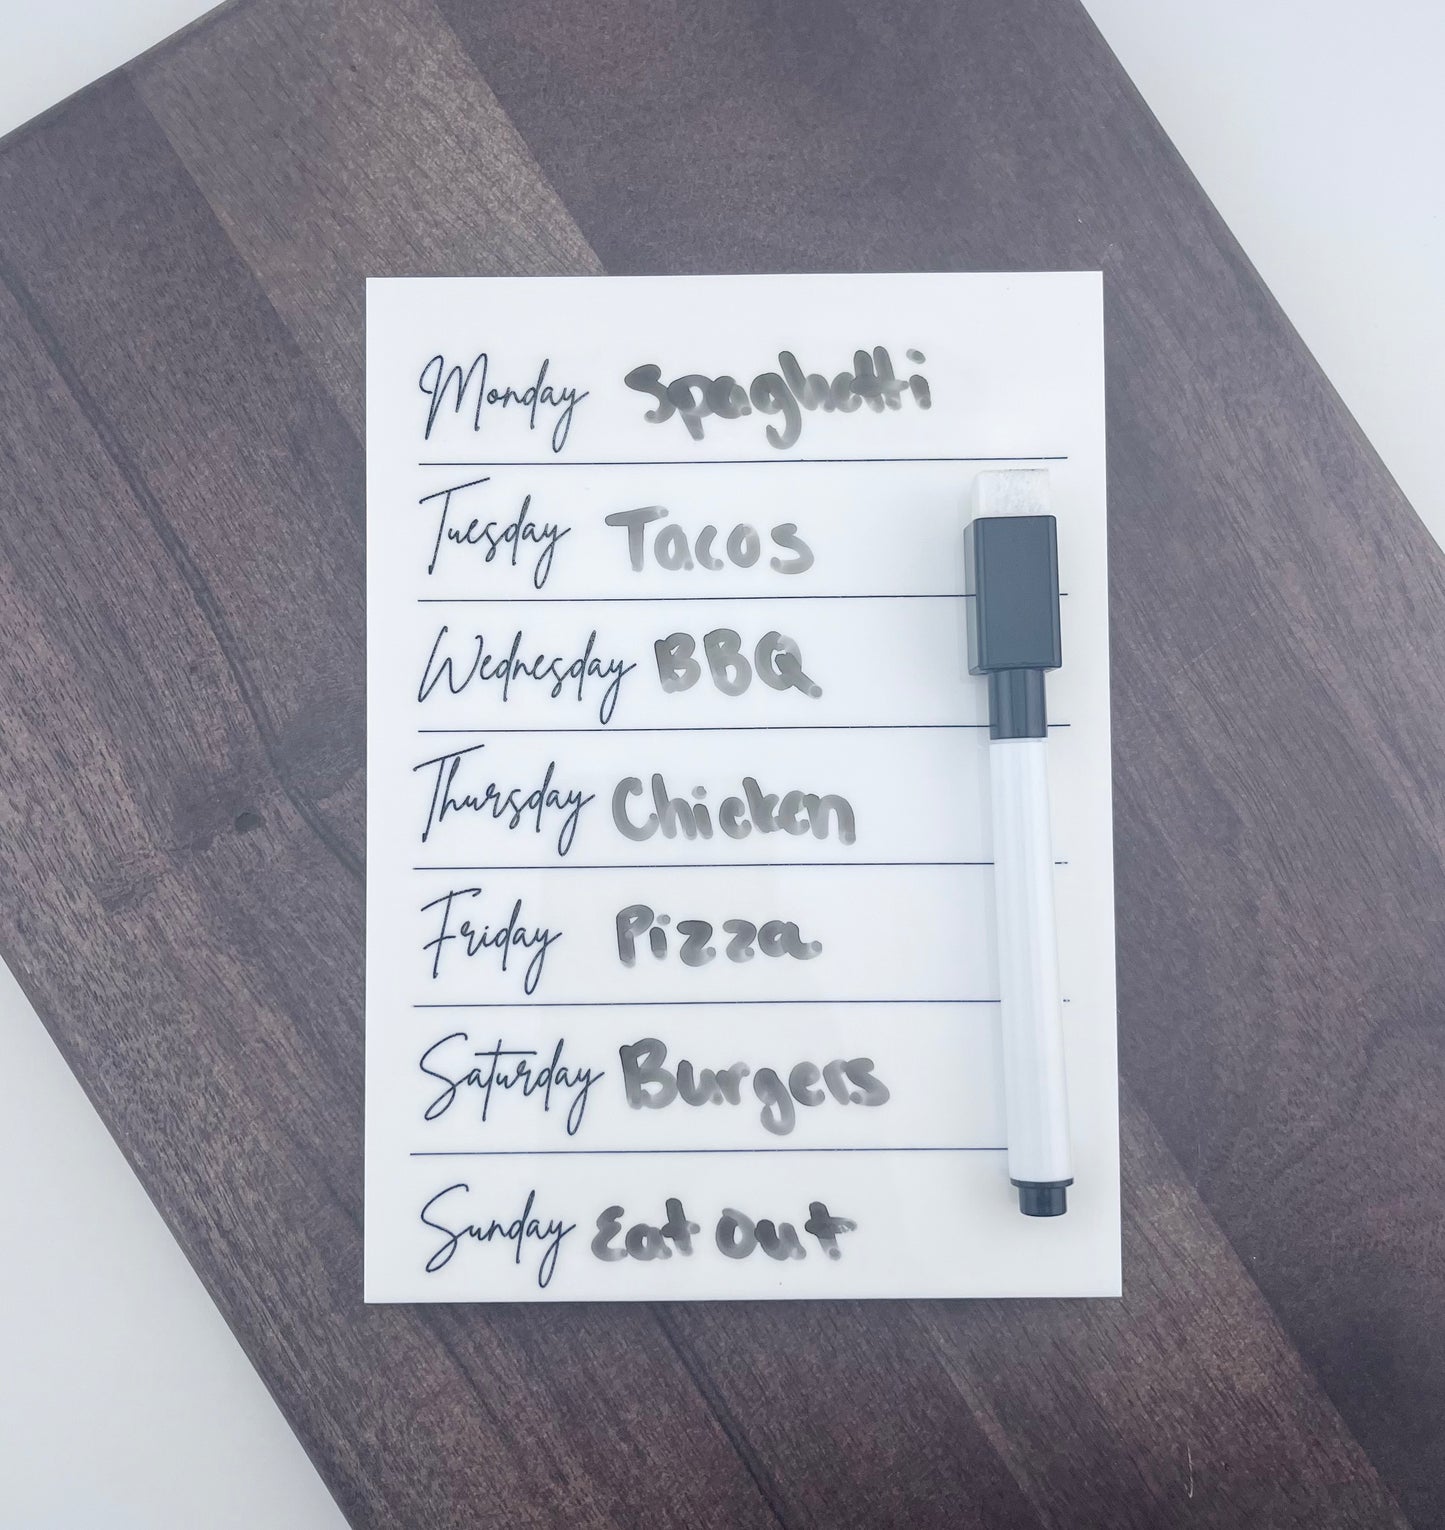 Monday Spaghetti
Tuesday Tacos
Wednesday BBQ
Thursday Chicken
Friday Pizza
Saturday Burgers
Sunday Eat Out